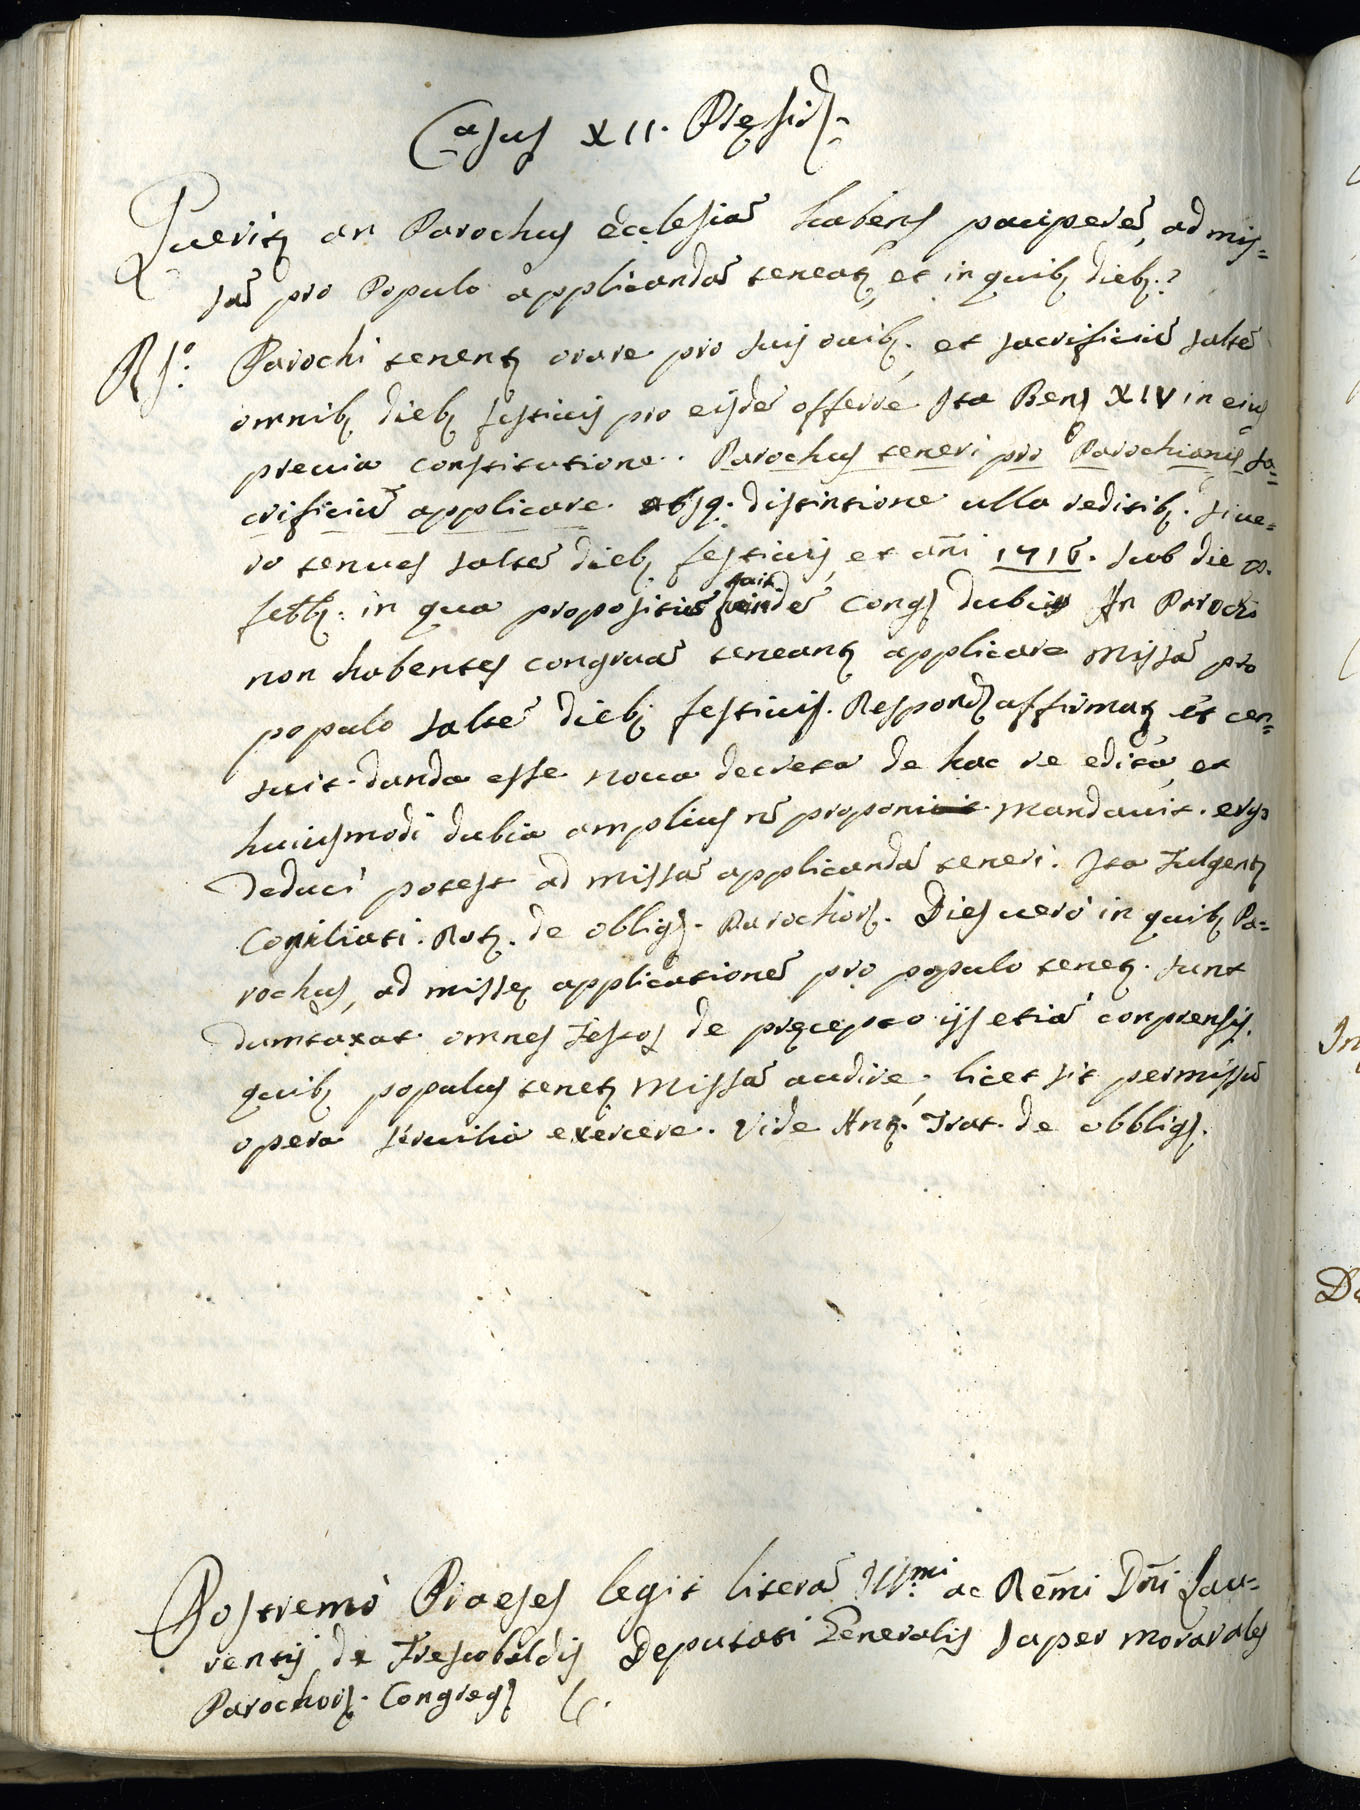 Casus XII. Pręsid.
Querit an Parochus ecclesiã habens pauperẽ, ad mis=
sã pro Populo applicandã teneat, et in quib dieb.?
Rs.o: Parochi tenent orare pro suis ouib. et sacrificiũ saltẽ
omnib dieb festiuis pro eisdẽ offerre. Ita Ben XIV in eius
preuia constitutione. Parochus teneri pro Parochianis sa=
crificiũ applicare. absq. distintione ulla reditib. siue=
ro tenues saltẽ dieb festiuis, et añi 1716. sub die
in qua propositũ fuit Cong dubiũ An Parochi
non habentes congruã teneant applicare missã pro
populo saltẽ dieb. festiuis. Respond affirmat et cen=
suit danda esse noua decreta de hac re edita, et
huiusmodi dubia amplius nõ proponi mandauit. ergo
Deduci potest ad missã applicandã teneri. Ita Fulgent
de oblig. Parochor. Dies uerò in quib Pa=
rochus, ad missę applicationẽ pro populo tenet. sunt
dumtaxat omnes Festos de pręcepto ijs etiã conprensis.
quib populus tenet Missã audire, licet sit permissũ
opera seruilia exercere. Vide Ant. Trat. de obblig.
Postremò Praeses legit literã Illmi ac Rẽmi Dñi Lau=
rentij de Frescobaldis Deputati Generalis super morarales
Parochor. Congreg